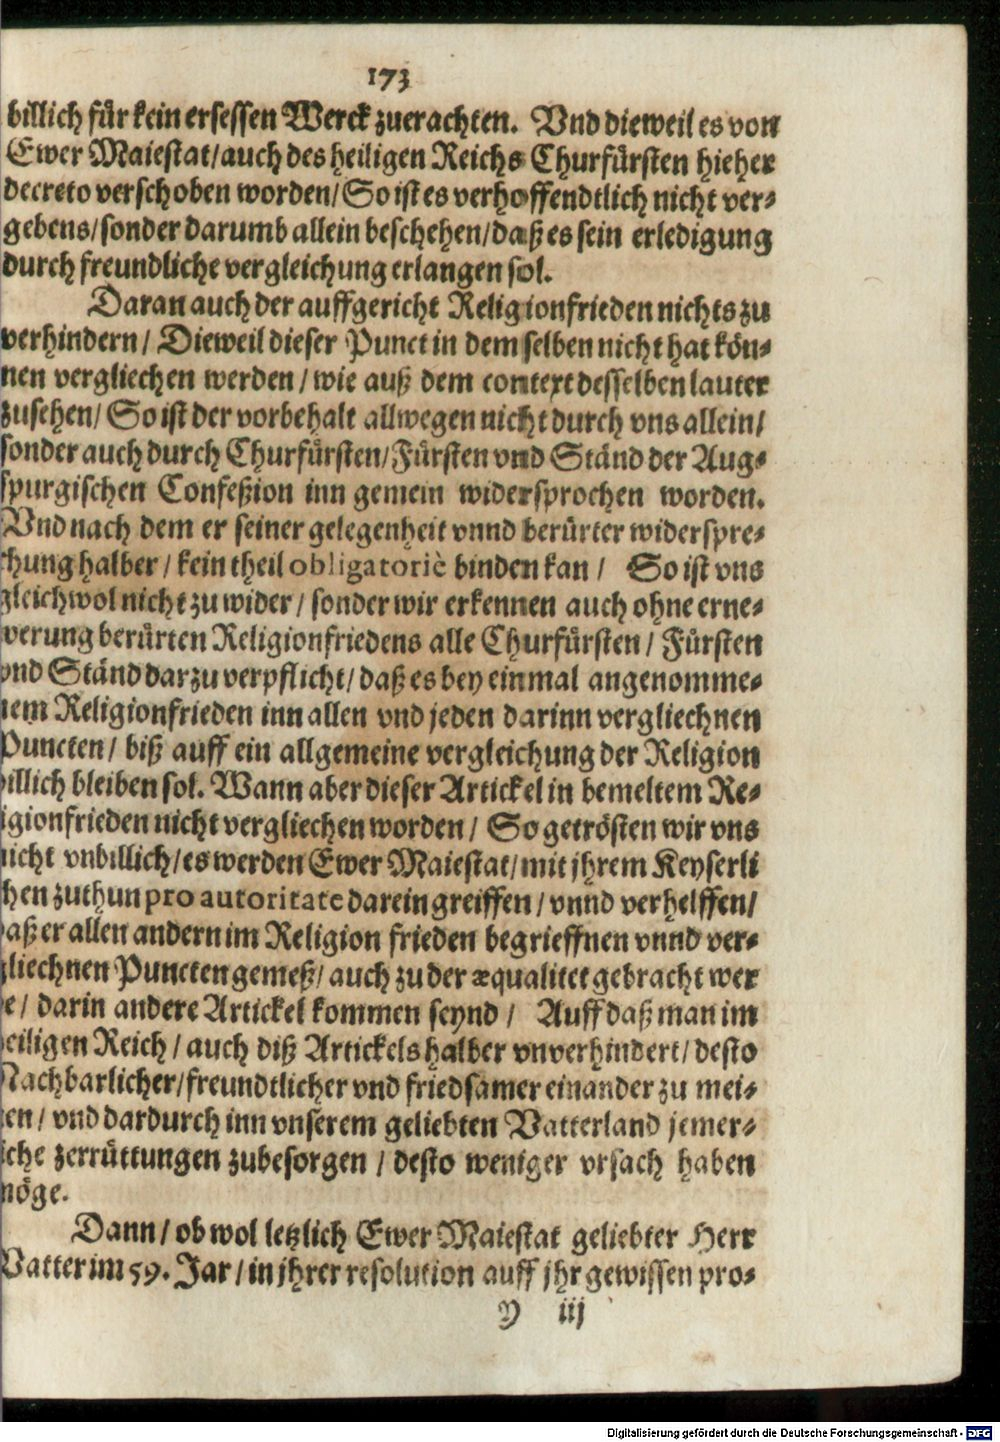 173
billich fůr kein ersessen Werck zuerachten. Vnd dieweil es von
Ewer Maiestat/auch des heiligen Reichs Churfůrsten hieher
decreto verschoben worden/So ist es verhoffendtlich nicht ver-
gebens/sonder darumb allein beschehen/daß es sein erledigung
durch freundliche vergleichung erlangen sol.
Daran auch der auffgericht Religionfrieden nichts zu
verhindern/ Dieweil dieser Punct in dem selben nicht hat kön-
nen vergliechen werden/wie auß dem context desselben lauter
zusehen/ So ist der vorbehalt allwegen nicht durch vns allein/
sonder auch durch Churfůrsten/Fůrsten vnd Ständ der Aug-
spurgischen Confeßion inn gemein widersprochen worden.
Vnd nach dem er seiner gelegenheit vnnd berůrter widerspre-
chung halber/kein theil obligatoriè binden kan/ So ist vns
gleichwol nicht zu wider/sonder wir erkennen auch ohne erne-
werung berůrten Religionfriedens alle Churfůrsten/Fůrsten
vnd Ständ darzu verpflicht/daß es bey einmal angenomme-
nem Religionfrieden inn allen vnd jeden darinn vergliechnen
Puncten/ biß auff ein allgemeine vergleichung der Religion
billich bleiben sol. Wann aber dieser Artickel in bemeltem Re-
ligionfrieden nicht vergliechen worden/ So getrösten wir vns
nicht vnbillich/es werden Ewer Maiestat/mit jhrem Keyserli
chen zuthun pro autoritate darein greiffen/vnnd verhelffen/
daß er allen andern im Religion frieden begrieffnen vnnd ver-
gliechnen Puncten gemeß/auch zu der æqualitet gebracht wer
de/ darin andere Artickel kommen seynd/ Auff daß man im
heiligen Reich/auch diß Artickels halber vnverhindert/desto
Nachbarlicher/freundtlicher vnd friedsamer einander zu mei-
nen/ vnd dardurch inn vnserem geliebten Vatterland jemer-
liche zerrůttungen zubesorgen/desto weniger vrsach haben
möge.
Dann/ob wol letzlich Ewer Maiestat geliebter Herr
Vatter im 59. Jar/in jhrer resolution auff jhr gewissen pro-
Y iij
Digitalisierung gefördert durch die Deutsche Forschungsgemeinschaft - DFG